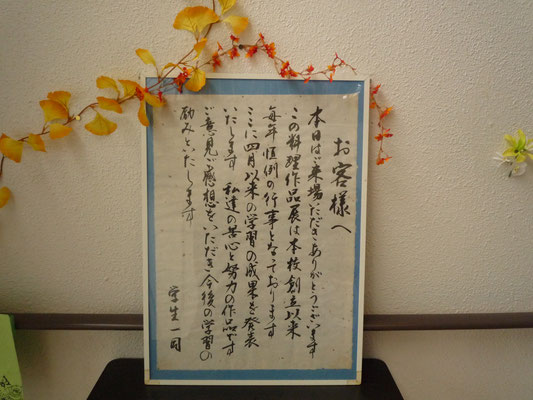 お客様へ
本日はご来場いただきありがとうございます
この料理作品展は本校創立以来
毎年恒例の行事となっております
ここに四月以来の学習の成果を発表
いたします 私達の苦心と努力の作品です
ご意見ご感想をいただき今後の学習の
励みといたします
学生一同